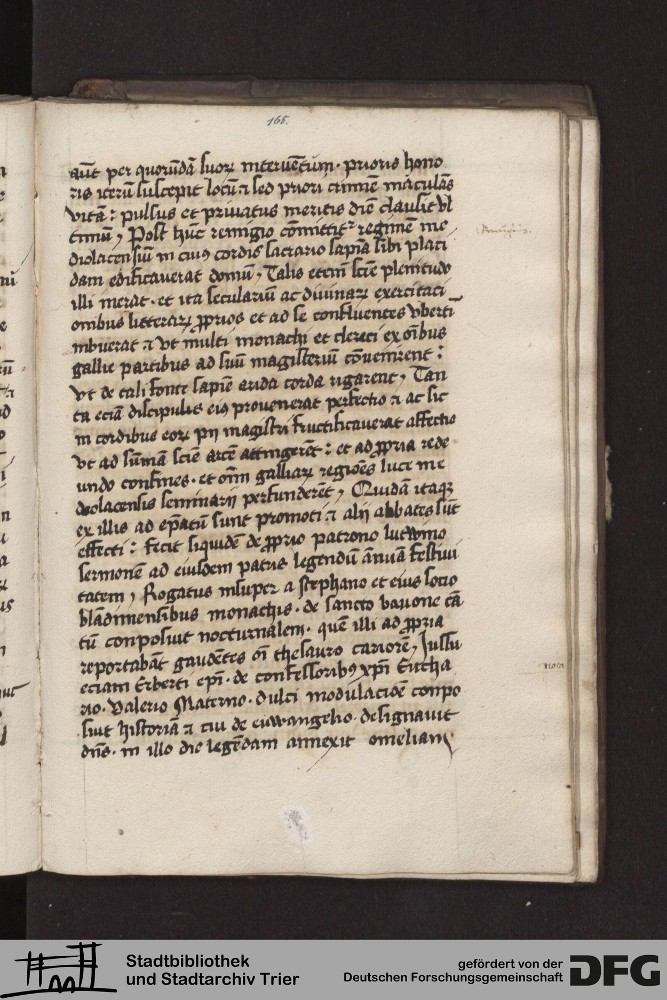 165.
aūt per quorūdā suoꝝ interuētum · prioris hono
ris iterū suscepit locū ⁊ sed priori crimīe maculās
vitā : pulsus et priuatus meritis diē clausit vl
timū, Post hūc remigio cōmittit᷑ regimē me
diolacensiū in cuiꝰ cordis sacrario sapiā sibi placi
dam edificauerat domū, Talis etem̄ sciē plenitudo
illi inerat · et ita seculariū ac diuinaꝝ exercitaci
onibus litteraꝝ ꝓprios et ad se confluentes vberti
mbuerat ⁊ vt multi monachi et clerici ex oībus
gallie partibus ad suū magisteriū cōuenirent :
vt de tali fonte sapiē arida corda rigarent, Tan
ta eciā discipulis eiꝰ prouenerat perfectio ⁊ ac sic
in cordibus eoꝝ pij magistri fructificauerat affectio
vt ad sūmā sciē arcē attingerēt : et ad ꝓpria rede
undo confines · et om̄ galliaꝝ regiōes luce me
diolacensis seminarij perfunderēt, Quidā itaqꝫ
ex illis ad ep̄atū sunt promoti ⁊ alij abbates sūt
effecti : fecit siquidē de ꝓprio patrono lutwino
sermonē ad eiusdem patris legendū ānuā festiui
tatem, Rogatus insuper a stephano et eius socio
blādiniensibus monachis · de sancto bauone cā
tū conposuit nocturnalem · quē illi ad ꝓpria
reportabāt gaudētes om̄i thesauro cariorē, Jussu
eciam Erberti ep̄i · de confessoribꝰ xp̄i Eucha
rio · Valerio Materno · dulci modulacōe conpo
suit historiā ⁊ cui de euwangelio · designauit
dn̄s · in illo die legēdam annexit omeliam
Stadtbibliothek
und Stadtarchiv Trier
gefördert von der
Deutschen Forschungsgemeinschaft
DFG